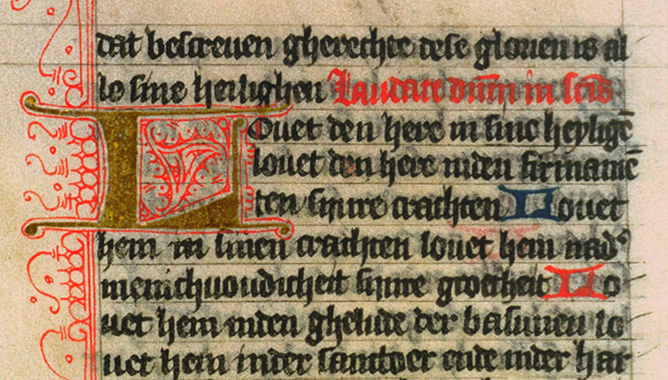 dat bescreuen gherechte dese glorien is al
lo sine heilighen Laudate dnm in scis
Louet den here in sine heylige
louet den here inden firmamē
ten sijnre crachten Louet
hem in sinen crachten louet hem nad'
menichuoudicheit sijnre groetheit Lo
uet hem inden ghelude der basunen lo
uet hem inder santoer ende inder har